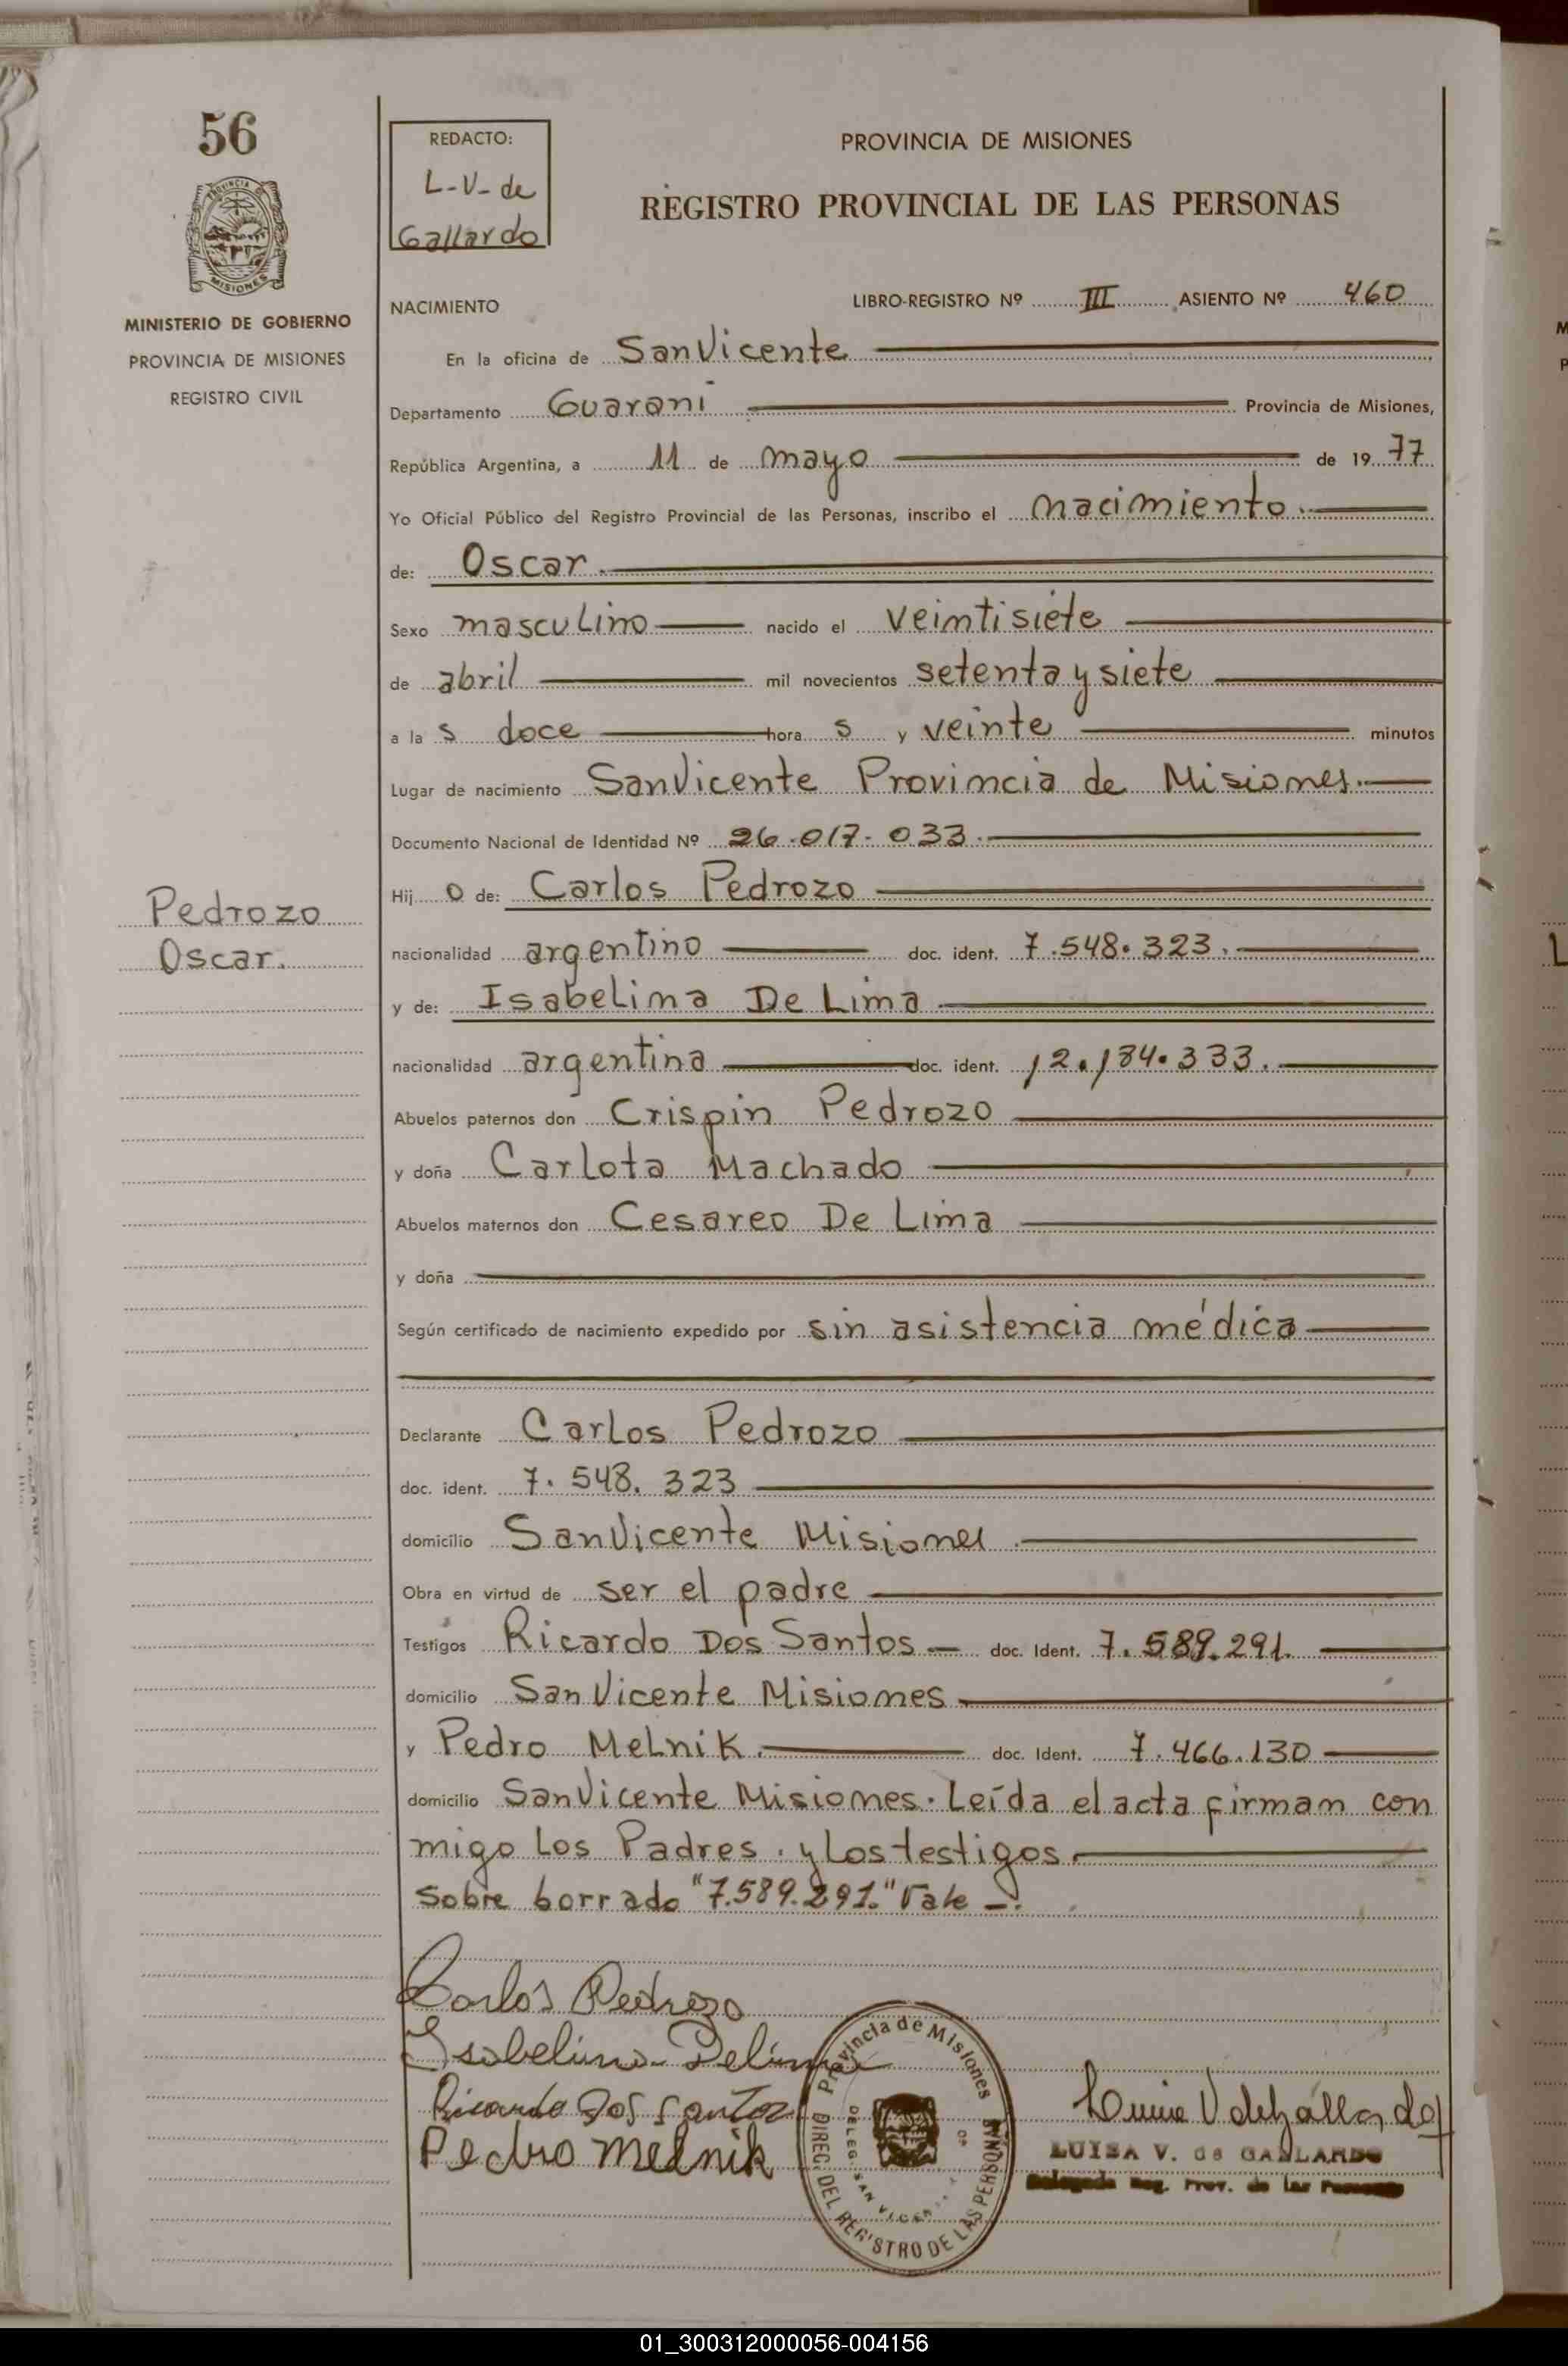 56
PROVINCIA DE MISIONES
MINISTERIO DE GOBIERNO
PROVINCIA DE MISIONES
REGISTRO CIVIL
REDACTO:
L-V-de
Gallardo
PROVINCIA DE MISIONES
REGISTRO PROVINCIAL DE LAS PERSONAS
NACIMIENTO LIBRO-REGISTRO Nº III ASIENTO Nº 460
En la oficina de San Vicente
Departamento Guarani Provincia de Misiones,
República Argentina, a 11 de mayo de 1977
Yo Oficial Público del Registro Provincial de las Personas, inscribo el nacimiento.
de: Oscar.
Sexo masculino nacido el veintisiéte
de abril mil novecientos setenta y siete
a la s doce hora s y veinte minutos
Lugar de nacimiento San Vicente Provincia de Misiones.
Documento Nacional de Identidad Nº 26.017.033.
Pedrozo
Oscar.
Hij o de: Carlos Pedrozo
nacionalidad argentino doc. ident. 7.548.323.
y de: Isabelina De Lima.
nacionalidad argentina doc. ident. 12.184.333.
Abuelos paternos don Crispin Pedrozo
y doña Carlota Machado
Abuelos maternos don Cesareo De Lima
y doña
Según certificado de nacimiento expedido por sin asistencia médica
Declarante Carlos Pedrozo
doc. ident. 7.548.323
domicilio San Vicente Misiones.
Obra en virtud de ser el padre
Testigos Ricardo Dos Santos — doc. Ident. 7.589.291.
domicilio San Vicente Misiones
y Pedro Melnik. doc. Ident. 7.466.130
domicilio San Vicente Misiones. Leída el acta firman con
migo los Padres. y los testigos.
Sobre borrado "7.589.291." Vale —.
Carlos Pedrozo
Isabelina Delima
Ricardo Dos Santos
Pedro Melnik
Provincia de Misiones
DIREC. DEL REGISTRO DE LAS PERSONAS
DELEG. SAN VICENTE
LUISA V. de GALLARDO
Delegada Reg. Prov. de las Personas
01_300312000056-004156